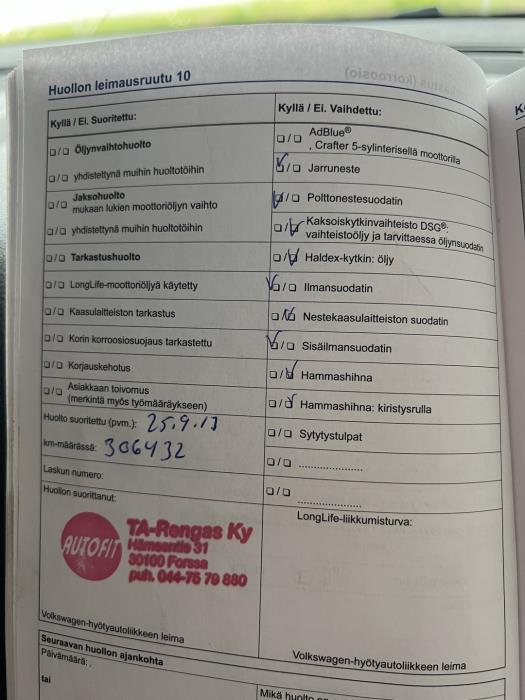 Huollon leimausruutu 10
Kyllä / Ei. Suoritettu:
❑/❑ Öljynvaihtohuolto
❑/❑ yhdistettynä muihin huoltotöihin
❑/❑ Jaksohuolto
mukaan lukien moottoriöljyn vaihto
❑/❑ yhdistettynä muihin huoltotöihin
❑/❑ Tarkastushuolto
❑/❑ LongLife-moottoriöljyä käytetty
❑/❑ Kaasulaitteiston tarkastus
❑/❑ Korin korroosiosuojaus tarkastettu
❑/❑ Korjauskehotus
❑/❑ Asiakkaan toivomus
(merkintä myös työmääräykseen)
Huolto suoritettu (pvm.): 25.9.17
km-määrässä: 306432
Laskun numero:
Huollon suorittanut:
AUTOFIT
TA-Rengas Ky
Hämeentie 31
30100 Forssa
puh. 044-75 79 880
Volkswagen-hyötyautoliikkeen leima
Kyllä / Ei. Vaihdettu:
❑/❑ AdBlue®
, Crafter 5-sylinterisellä moottorilla
☑/❑ Jarruneste
☑/❑ Polttonestesuodatin
❑/☑ Kaksoiskytkinvaihteisto DSG®:
vaihteistoöljy ja tarvittaessa öljynsuodatin
❑/☑ Haldex-kytkin: öljy
☑/❑ Ilmansuodatin
❑/☑ Nestekaasulaitteiston suodatin
☑/❑ Sisäilmansuodatin
❑/☑ Hammashihna
❑/☑ Hammashihna: kiristysrulla
❑/❑ Sytytystulpat
❑/❑ ......................
❑/❑ ......................
LongLife-liikkumisturva:
Volkswagen-hyötyautoliikkeen leima
Seuraavan huollon ajankohta
Päivämäärä:
tai